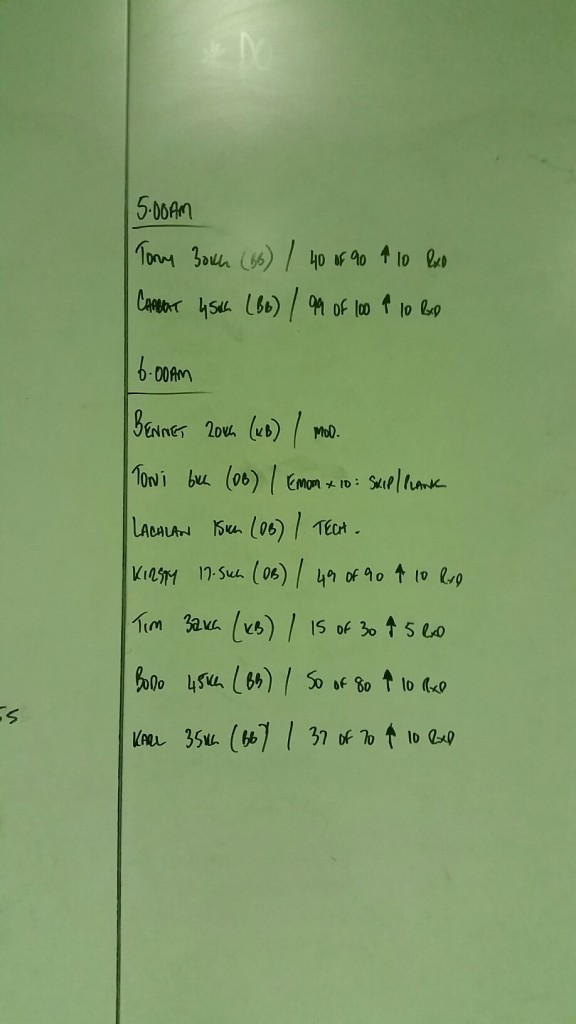 * DO
5.00AM
TONY 30KG (BB) / 40 OF 90 ↑ 10 RXD
45KG (BB) / 99 OF 100 ↑ 10 RXD
6.00AM
BENNET 20KG (KB) / MOD.
TONI 6KG (DB) / EMOM x 10: SKIP/PLANK
LACHLAN 15KG (DB) / TECH.
KIRSTY 17.5KG (DB) / 49 OF 90 ↑ 10 RXD
TIM 32KG (KB) / 15 OF 30 ↑ 5 RXD
BODO 45KG (BB) / 50 OF 80 ↑ 10 RXD
SS
KARL 35KG (BB) / 37 OF 70 ↑ 10 RXD